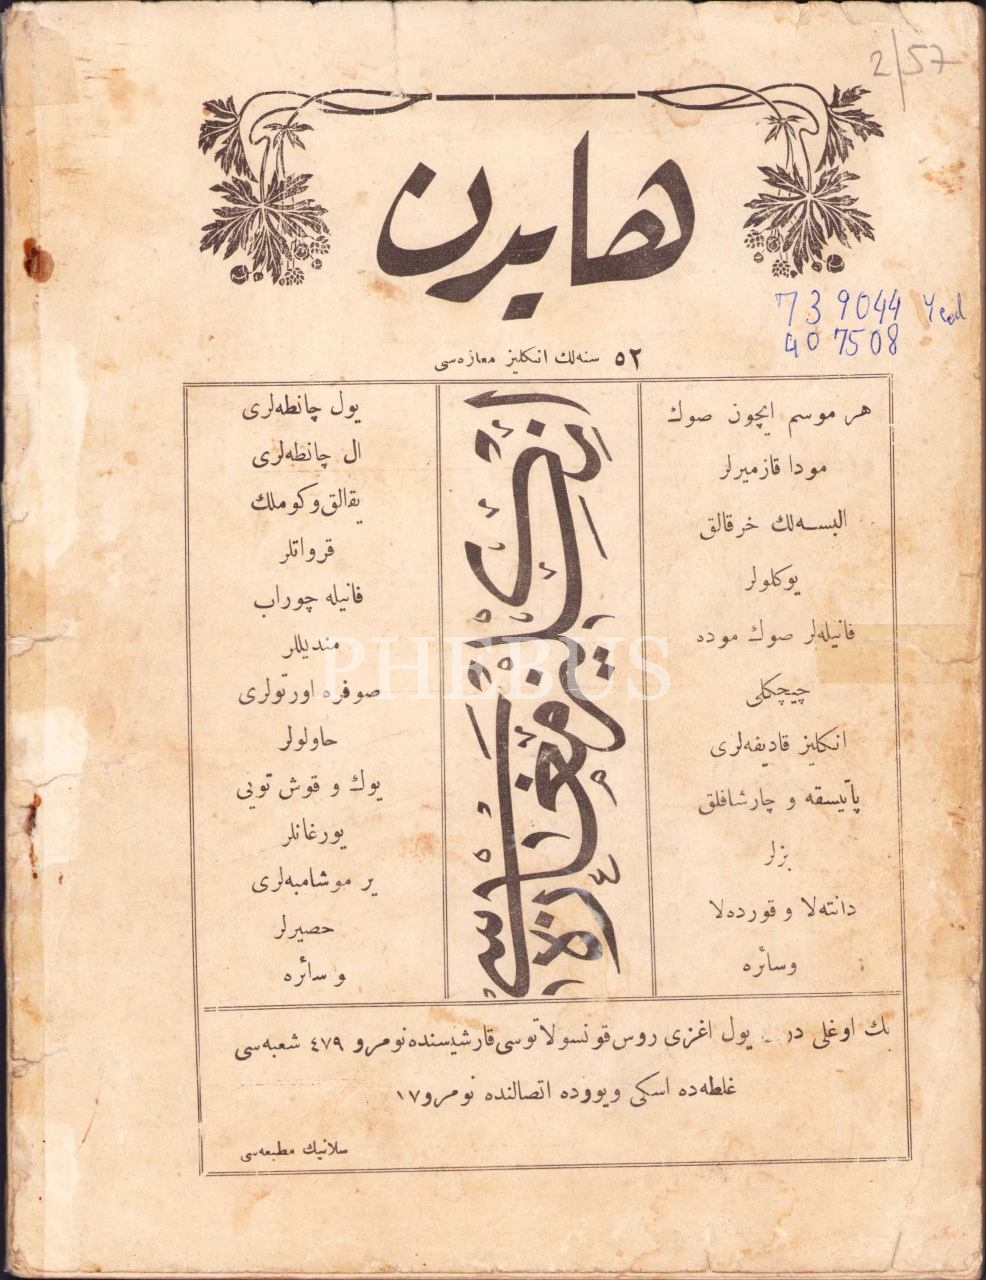 2/57
هايدن
739044 Yeed
407508
٥٢ سنه‌لك انكليز مغازه‌سى
هر موسم ايچون صوك
مودا قازميرلر
البسه‌لك خرقالق
يوكلولر
فانيله‌لر صوك موده
چيچكلى
انكليز قاديفه‌لرى
پاتيسقه و چارشافلق
بزلر
دانته‌لا و قورده‌لا
وسائره
انكليز مغازه‌سى
يول چانطه‌لرى
ال چانطه‌لرى
يقالق وكوملك
قرواتلر
فانيله چوراب
منديللر
صوفره اورتولرى
حاولولر
يوك و قوش تويى
يورغانلر
ير موشامبه‌لرى
حصيرلر
و سائره
بك اوغلى در يول اغزى روس قونسولاتوسى قارشيسنده نومرو ٤٧٩ شعبه‌سى
غلطه‌ده اسكى ويووده اتصالنده نومرو ١٧
سلانيك مطبعه‌سى
PHEBUS